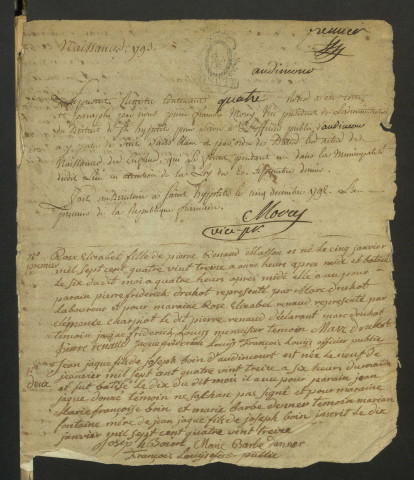 Naissances 1793
audincourt
Le présent Registre contenant quatre
et paraphé par nous Jean François Morey Vice président du
du District de St hypolite pour servir à l'officier public d'audincourt
à y
Naissances des Enfans qui se feront pendant un dans la Municipalité
dudit Lieu en exécution de la Loy du 20 septembre dernier.
Fait en Directoire à Saint hypolite le cinq decembre 1792 L'an
premier de la République francaise.
Morey
vice-pt
No premier
Rose Elizabet fille de pierre Renaud masson et né le cinq janvier
mil sept cent quatre vint treize a onne heure apres midÿ et batisé
le six du dit moi a quatre heure apres midÿ elle a eu pour
parain pierre friderich druhot representé par Marc druhot
Laboureur et pour maraine Rose Elizabet renaud representé par
Clemonde charpiot le dit pierre renaud declarant marc druhot
temoin jaque friderich Louÿs menusier temoin Marc druhot
pierre renaud jaque friderich Louÿs François Louÿs officier publie
deux
jean jaque fils de joseph boin d'audincourt est née le neuf de
janvier mil sept cent quatre vint treize a six heur du matin
et fut batisé le dix du dit moi il a eu pour parain jean
jaque donné temoin ne sachan pas signé et pour maraine
Marie françoise boin et marie barbe denner temoin marian
fontaine mère de jean jaque fils de joseph boin inscrit le dix
janvier mil sept cent quatre vint treize
Josep le Boine Marie Barbe danner
François Louÿs officier publie